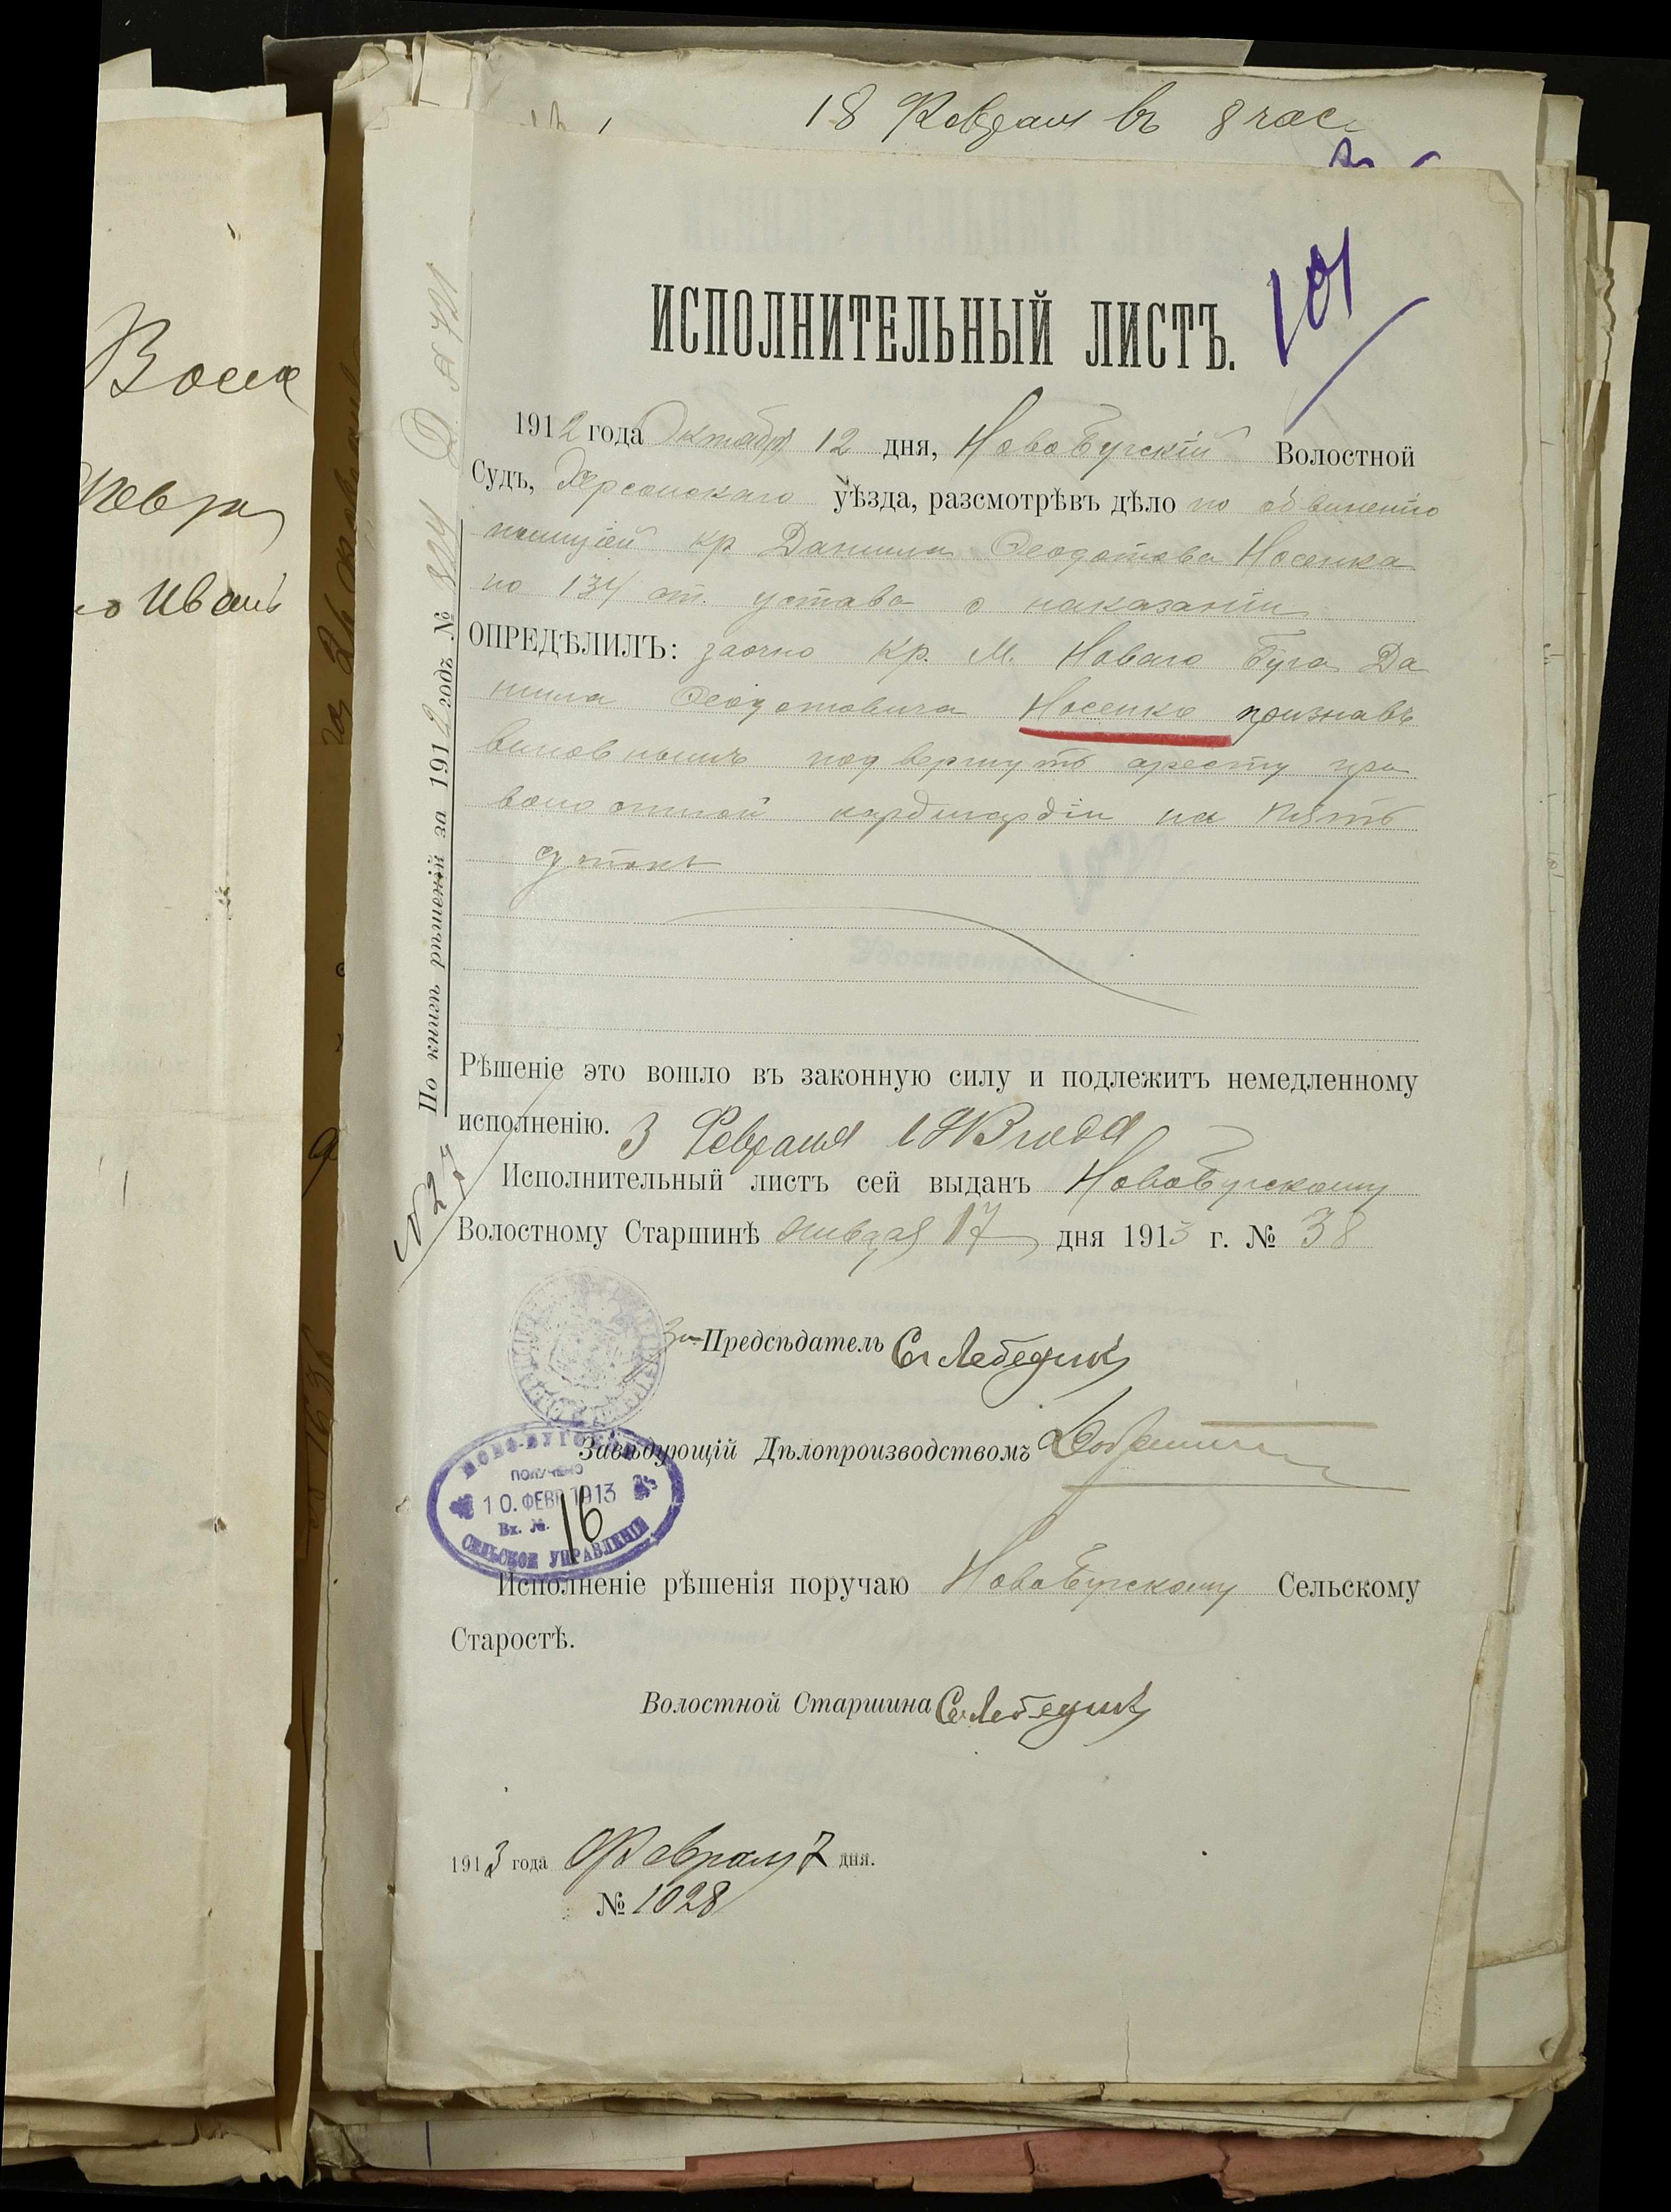 18 Февраля въ 8 час
101
ИСПОЛНИТЕЛЬНЫЙ ЛИСТЪ.
1912 года Октября 12 дня, НовоБугскій Волостной
Судъ, Херсонскаго уѣзда, разсмотрѣвъ дѣло по обвиненію
полиціей кр Данила Феодотова Носенка
по 134 ст. устава о наказаніи
ОПРЕДѢЛИЛЪ: заочно кр. М. Новаго Буга Да
нила Феодотовича Носенко признавъ
виновнымъ подвергнуть аресту при
волостной на пять
сутокъ
Рѣшеніе это вошло въ законную силу и подлежитъ немедленному
исполненію. 3 Февраля 1913 года
Исполнительный листъ сей выданъ НовоБугскому
Волостному Старшинѣ января 17 дня 1913 г. № 38
За Предсѣдатель Лебедикъ
Завѣдующій Дѣлопроизводствомъ
НОВО-БУГСКОЕ
ПОЛУЧЕНО
10. ФЕВР 1913
Вх. №. 16
СЕЛЬСКОЕ УПРАВЛЕНІЕ
Исполненіе рѣшенія поручаю НовоБугскому Сельскому
Старостѣ.
Волостной Старшина Лебедикъ
1913 года Февраля 7 дня.
№ 1028
По книгѣ рѣшеній за 1912 годъ №
№ 27